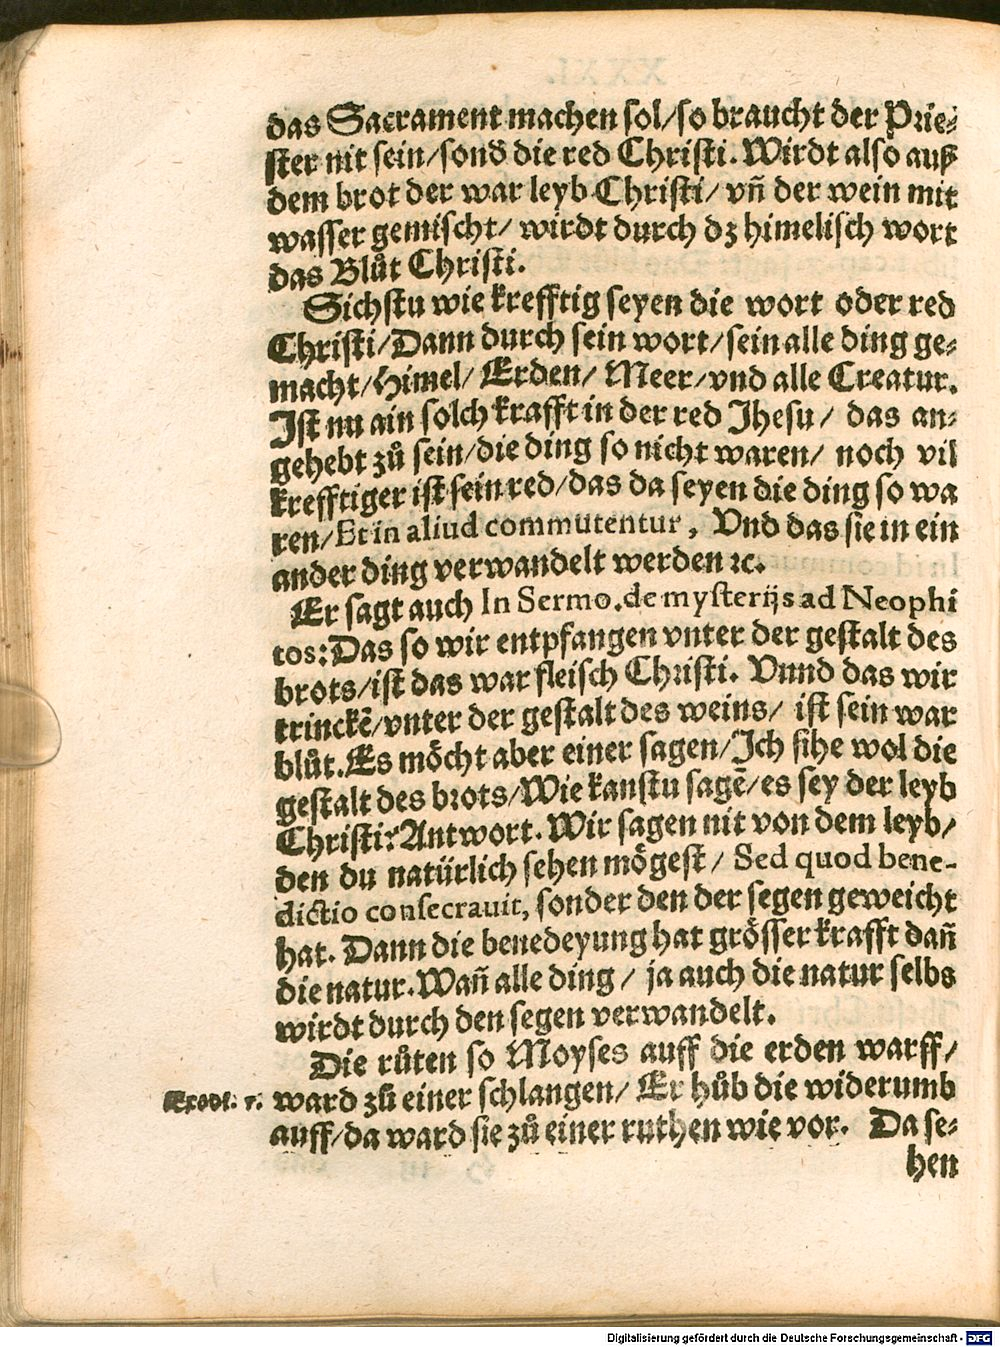 das Sacrament machen sol/so braucht der Prie⸗
ster nit sein/sonđ die red Christi. Wirdt also auß
dem brot der war leyb Christi/ vñ der wein mit
wasser gemischt/ wirdt durch dz himelisch wort
das Blůt Christi.
Sichstu wie krefftig seyen die wort oder red
Christi/Dann durch sein wort/sein alle ding ge⸗
macht/Himel/ Erden/ Meer/vnd alle Creatur.
Ist nu ain solch krafft in der red Jhesu/ das an⸗
gehebt zů sein/die ding so nicht waren/ noch vil
krefftiger ist sein red/das da seyen die ding so wa
ren/Et in aliud commutentur, Vnd das sie in ein
ander ding verwandelt werden ꝛc.
Er sagt auch In Sermo. de mysterijs ad Neophi
tos: Das so wir entpfangen vnter der gestalt des
brots/ist das war fleisch Christi. Vnnd das wir
trinckē/vnter der gestalt des weins/ ist sein war
blůt. Es möcht aber einer sagen/Ich sihe wol die
gestalt des brots/Wie kanstu sagē/es sey der leyb
Christi? Antwort. Wir sagen nit von dem leyb/
den du natürlich sehen mögest/ Sed quod bene-
dictio consecrauit, sonder den der segen geweicht
hat. Dann die benedeyung hat grösser krafft dañ
die natur. Wañ alle ding/ ja auch die natur selbs
wirdt durch den segen verwandelt.
Die růten so Moyses auff die erden warff/
Exodi. 7. ward zů einer schlangen/ Er hůb die widerumb
auff/da ward sie zů einer ruthen wie vor. Da se⸗
hen
Digitalisierung gefördert durch die Deutsche Forschungsgemeinschaft - DFG